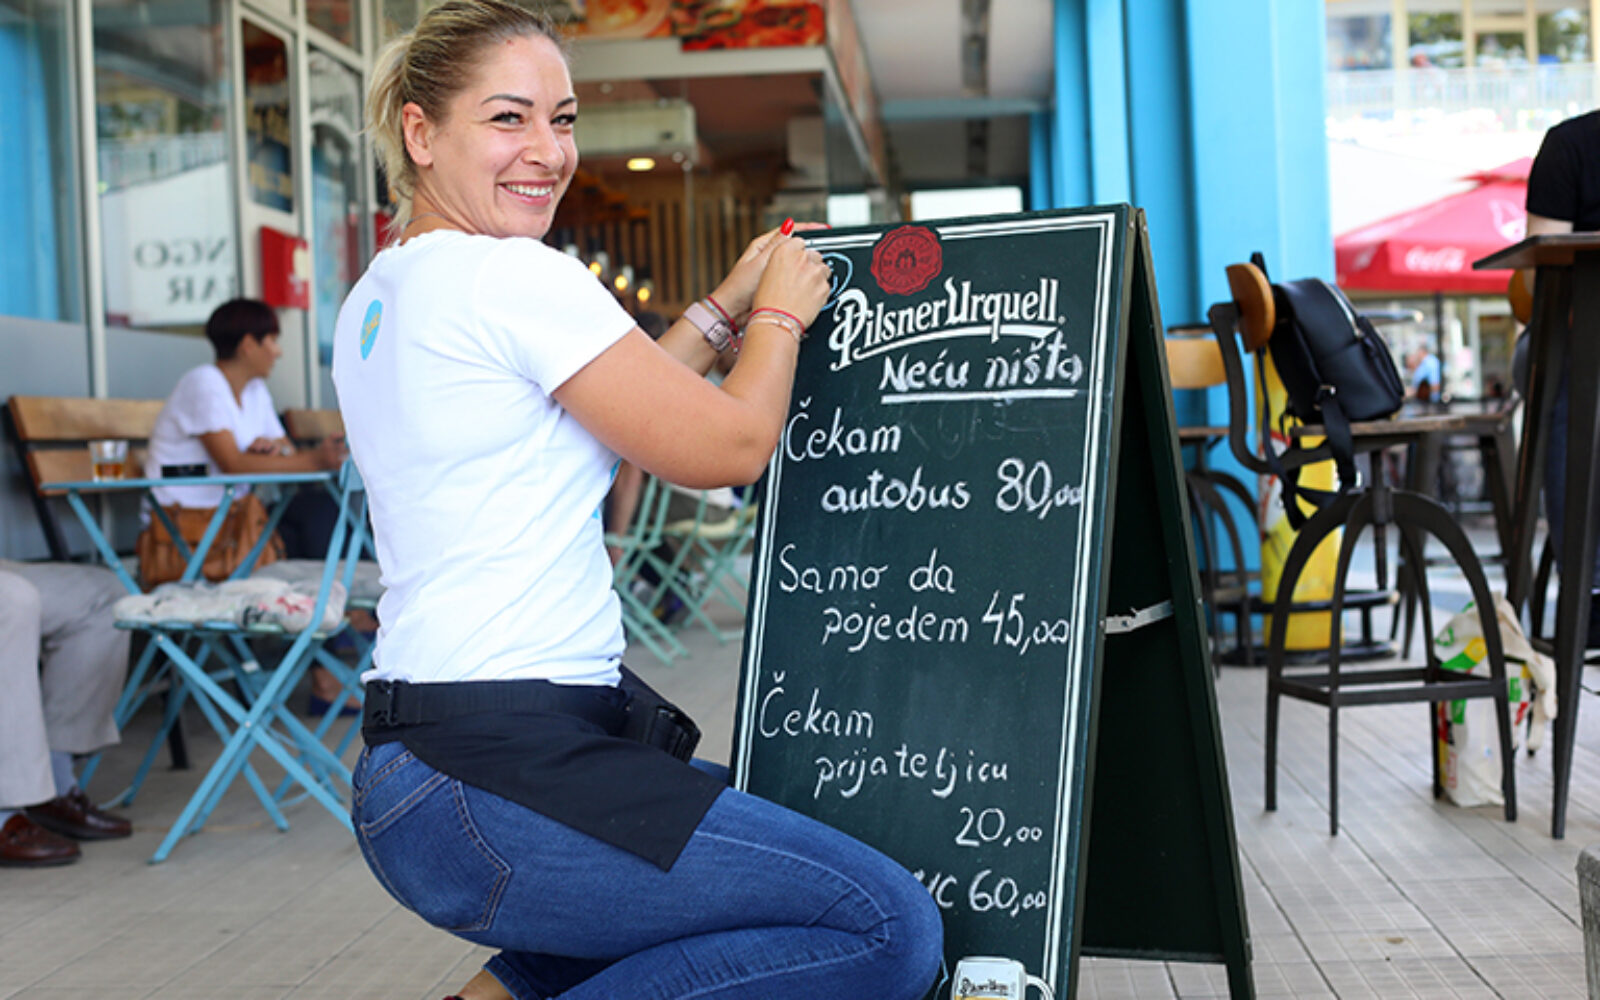 Pilsner Urquell
Neću ništa
Čekam
autobus 80,00
Samo da
pojedem 45,00
Čekam
prijateljicu
20,00
WC 60,00
Pilsner Urquell
Coca-Cola
NGO
AR